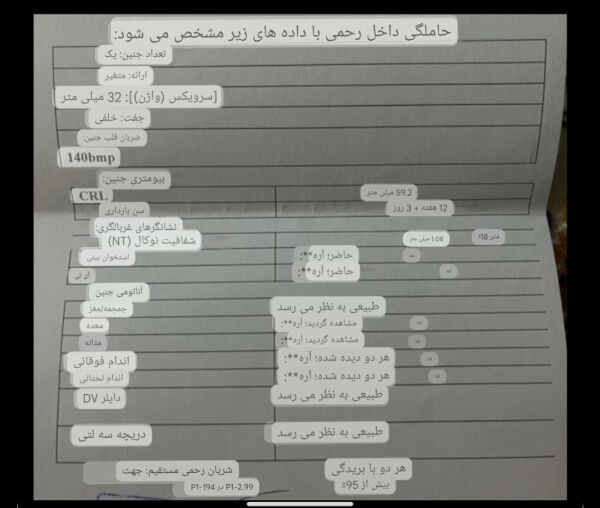 حاملگی داخل رحمی با داده های زیر مشخص می شود:
تعداد جنین: یک
ارائه: متغیر
[سرویکس (واژن)]: 32 میلی متر
جفت: خلفی
ضربان قلب جنین:
140bmp
بیومتری جنین:
CRL 59.2 میلی متر
سن بارداری 12 هفته + 3 روز
نشانگرهای غربالگری:
شفافیت نوکال (NT) 1.08 میلی متر متر 18٪
استخوان بینی حاضر؛ آره**: نه:
آی تی حاضر؛ آره**: نه:
آناتومی جنین
جمجمه/مغز طبیعی به نظر می رسد
معده مشاهده گردید؛ آره**: نه:
مثانه مشاهده گردید؛ آره**: نه:
اندام فوقانی هر دو دیده شده؛ آره**: نه:
اندام تحتانی هر دو دیده شده؛ آره**: نه:
داپلر DV طبیعی به نظر می رسد
دریچه سه لتی طبیعی به نظر می رسد
شریان رحمی مستقیم: جهت هر دو با بریدگی
P1-2.99 در P1-194 بیش از 95٪